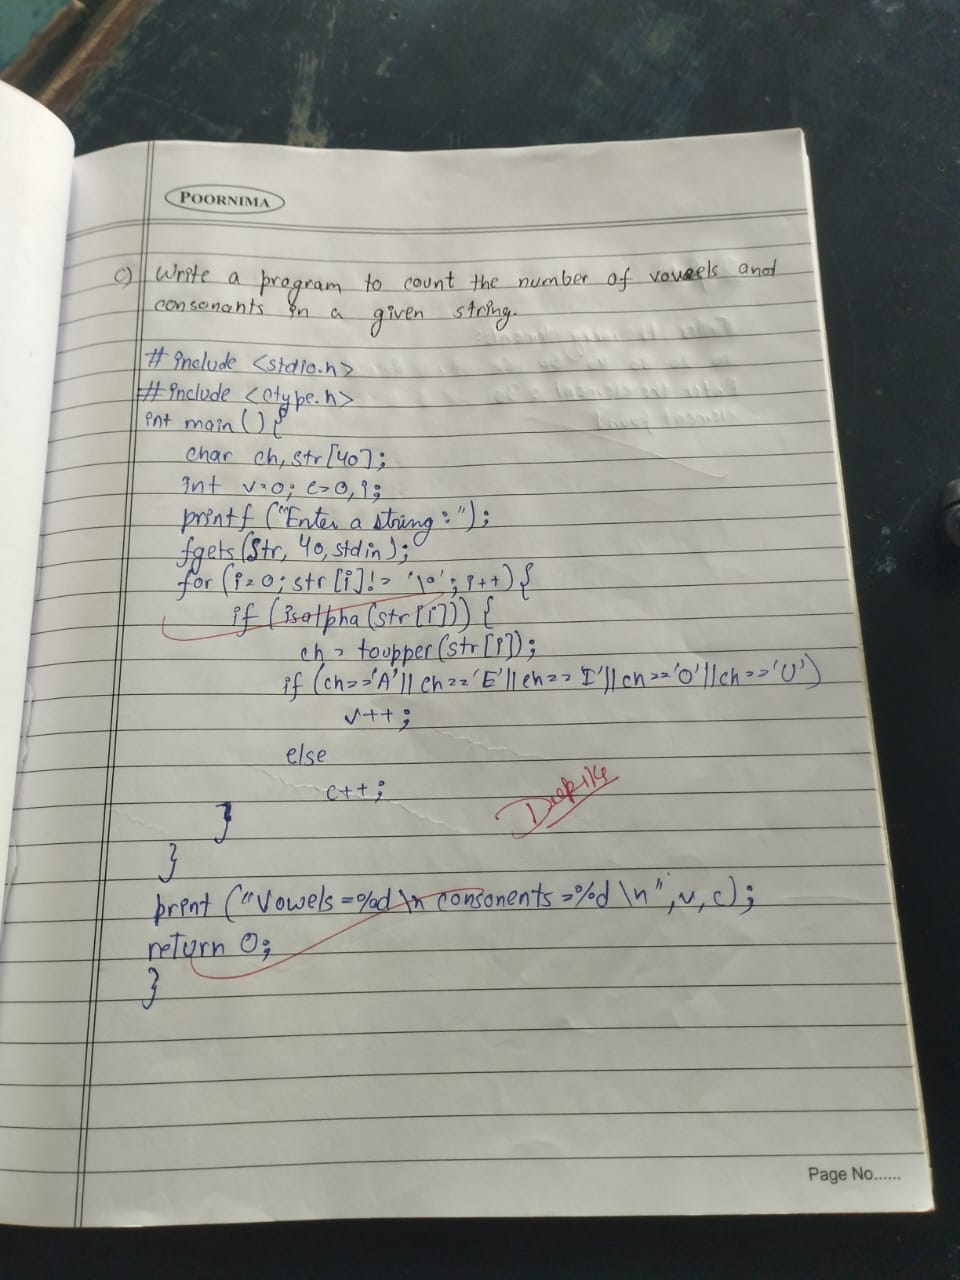 POORNIMA
c) Write a program to count the number of vowels and
consonants in a given string.
# include <stdio.h>
# include <ctype.h>
int main () {
char ch, str [40];
int v=0; c=0, i;
printf ("Enter a string :");
fgets (str, 40, stdin);
for (i=0; str [i]!= '\0'; i++) {
if (isalpha (str [i])) {
ch = toupper (str [i]);
if (ch=='A' || ch=='E' || ch== I' || ch=='O' || ch=='U')
v++;
else
c++;
}
}
prent ("Vowels =%d \n consonents =%d \n", v, c);
return 0;
}
Page No......